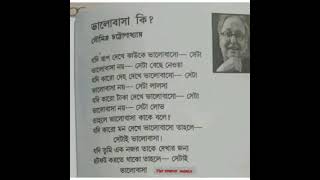 ভালোবাসা কি?
সৌমিত্র চট্টোপাধ্যায়
যদি রূপ দেখে কাউকে ভালোবাসো— সেটা
ভালোবাসা নয়— সেটা বেছে নেওয়া
যদি কারো দেহ দেখে ভালোবাসো— সেটা
ভালোবাসা নয়— সেটা লালসা
যদি কারো টাকা দেখে ভালোবাসো— সেটা
ভালোবাসা নয়— সেটা লোভ
তাহলে ভালোবাসা কাকে বলে?
যদি কারো মন দেখে ভালোবাসো তাহলে—
সেটাই ভালোবাসা
যদি তুমি এক নজর তাকে দেখার জন্য
ছটফট করতে থাকো তাহলে— সেটাই
ভালোবাসা